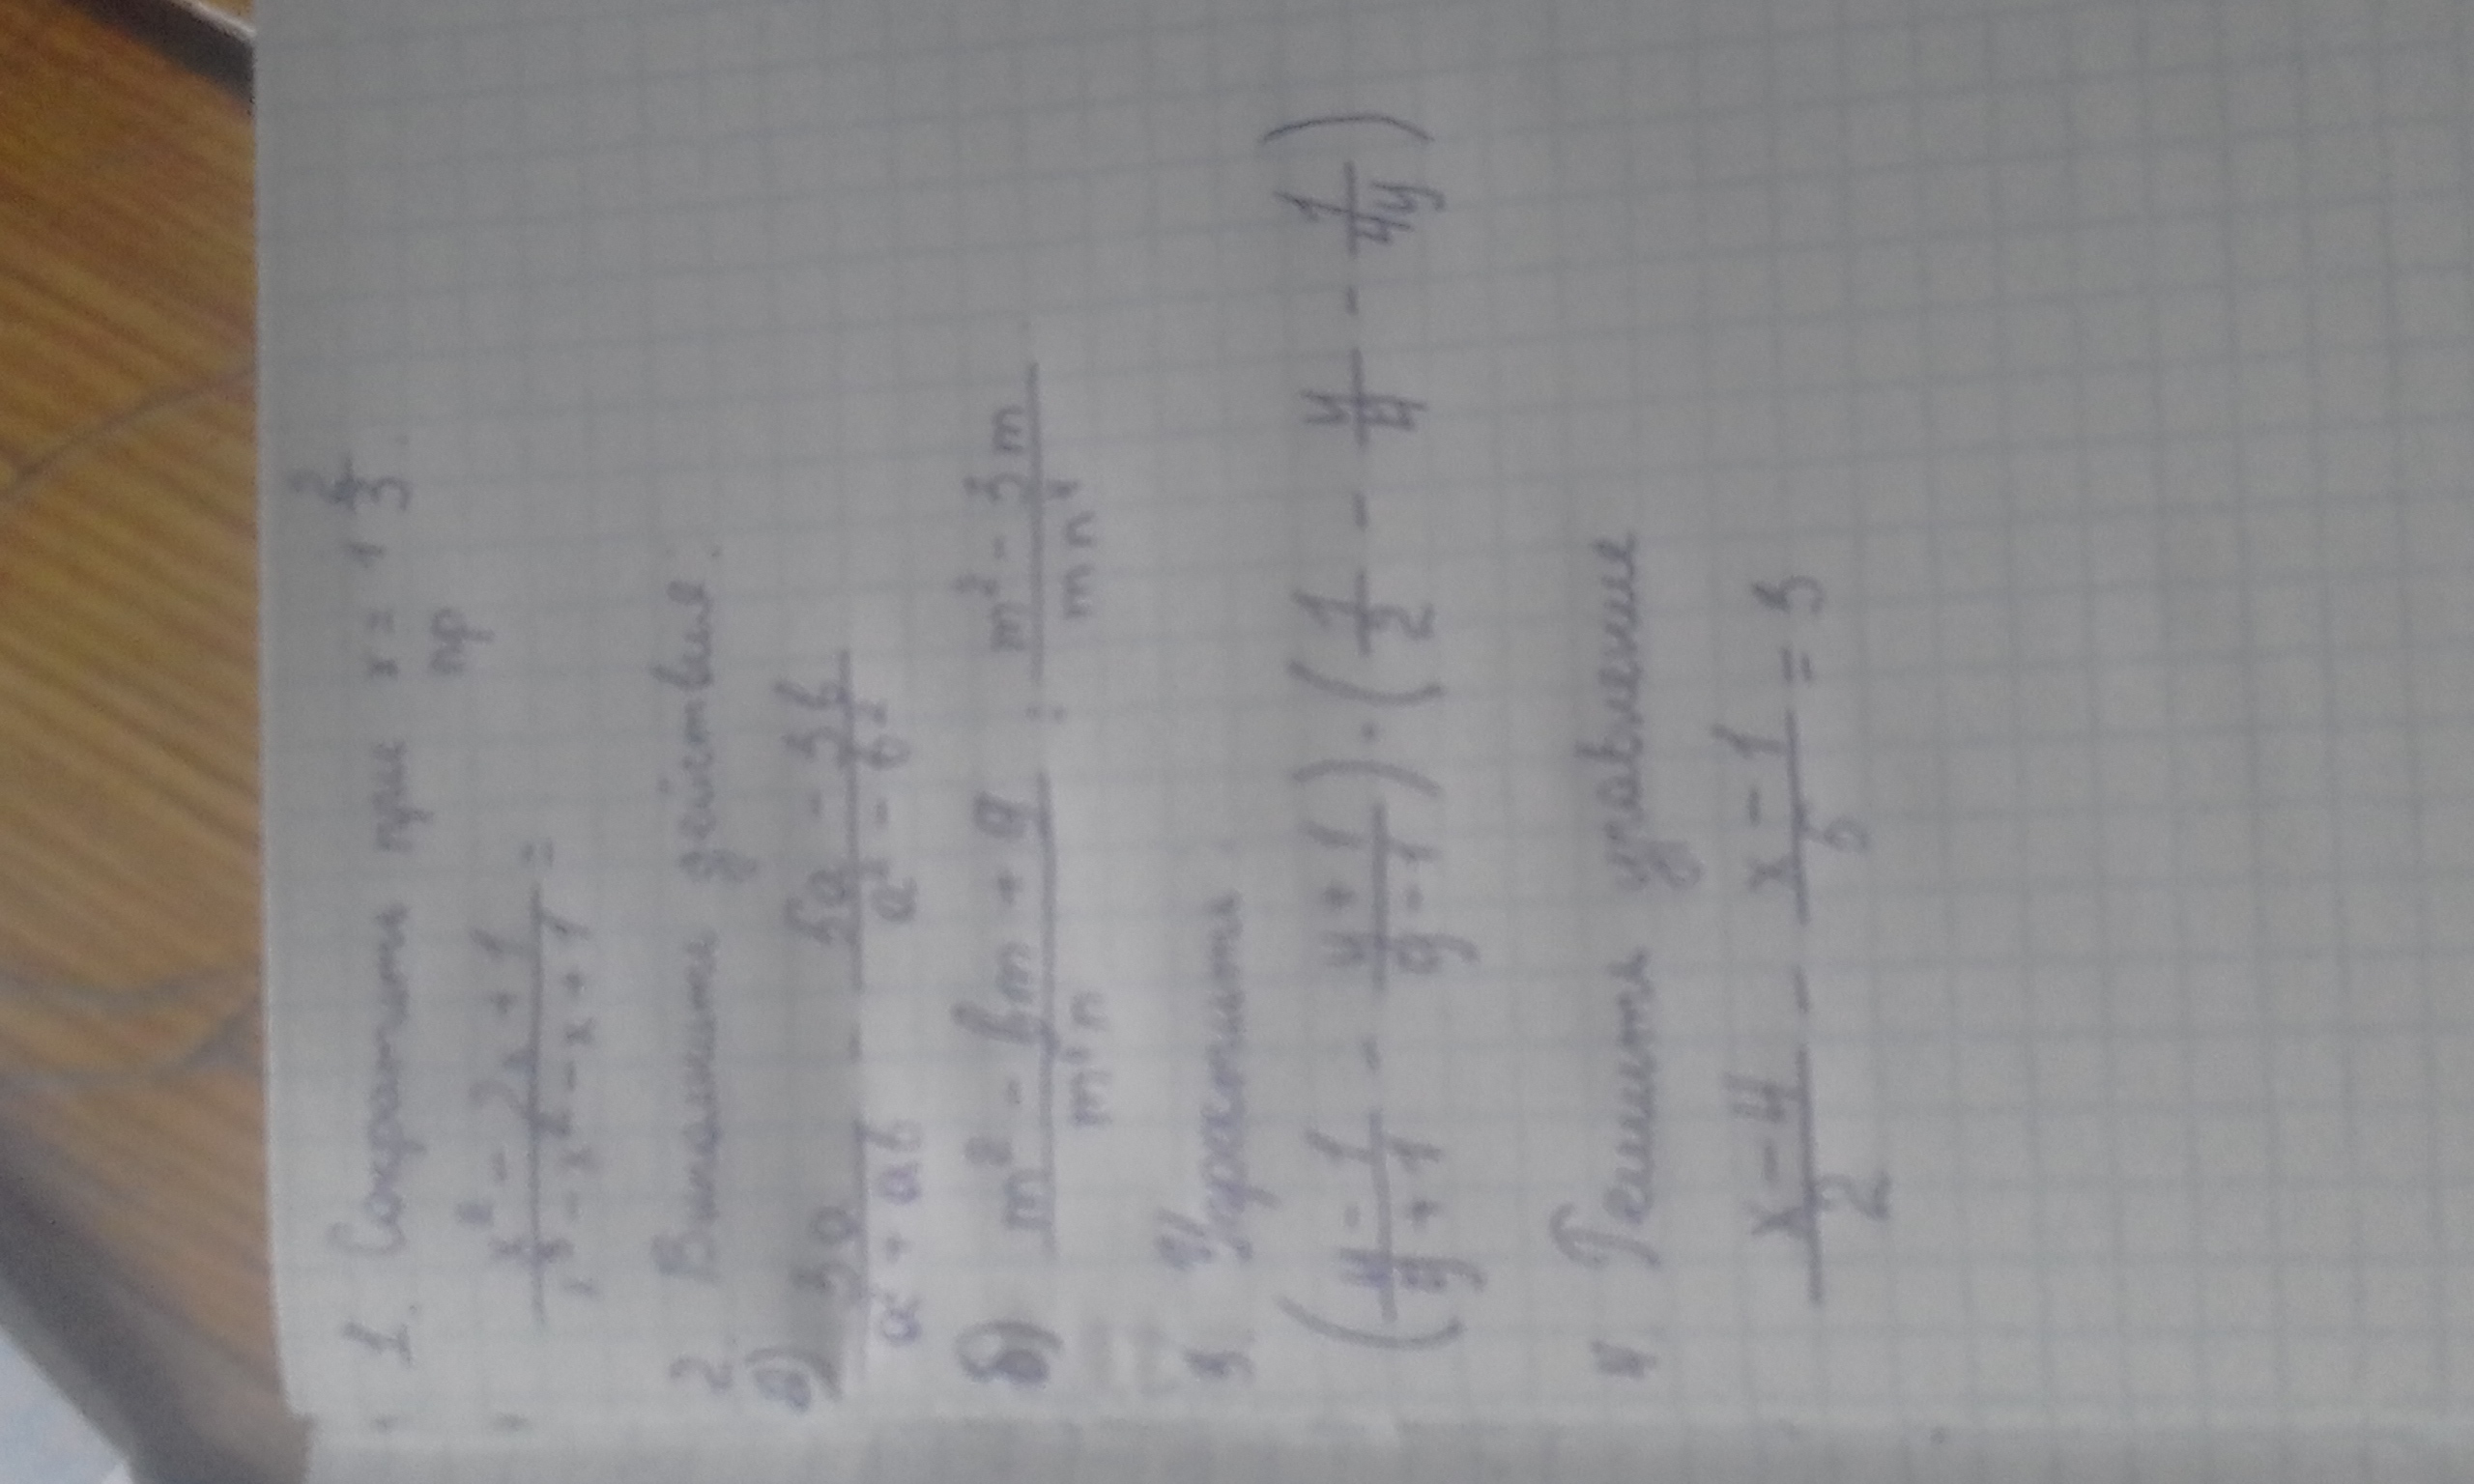 1. Сократить при x = 1 2/3.
пр
x² - 2x + 1 / x³ - x² - x + 1 =
2. Выполнить действие:
а) 5a / a² + ab - 5a - 5b / a² - b²
б) m² - 6m + 9 / m²n : m² - 3m / mn⁴
3. Упростить
(y - 1 / y + 1 - y + 1 / y - 1) · (1/2 - y/4 - 1/4y)
4. Решить уравнение
x - 4 / 2 - x - 1 / 5 = 3